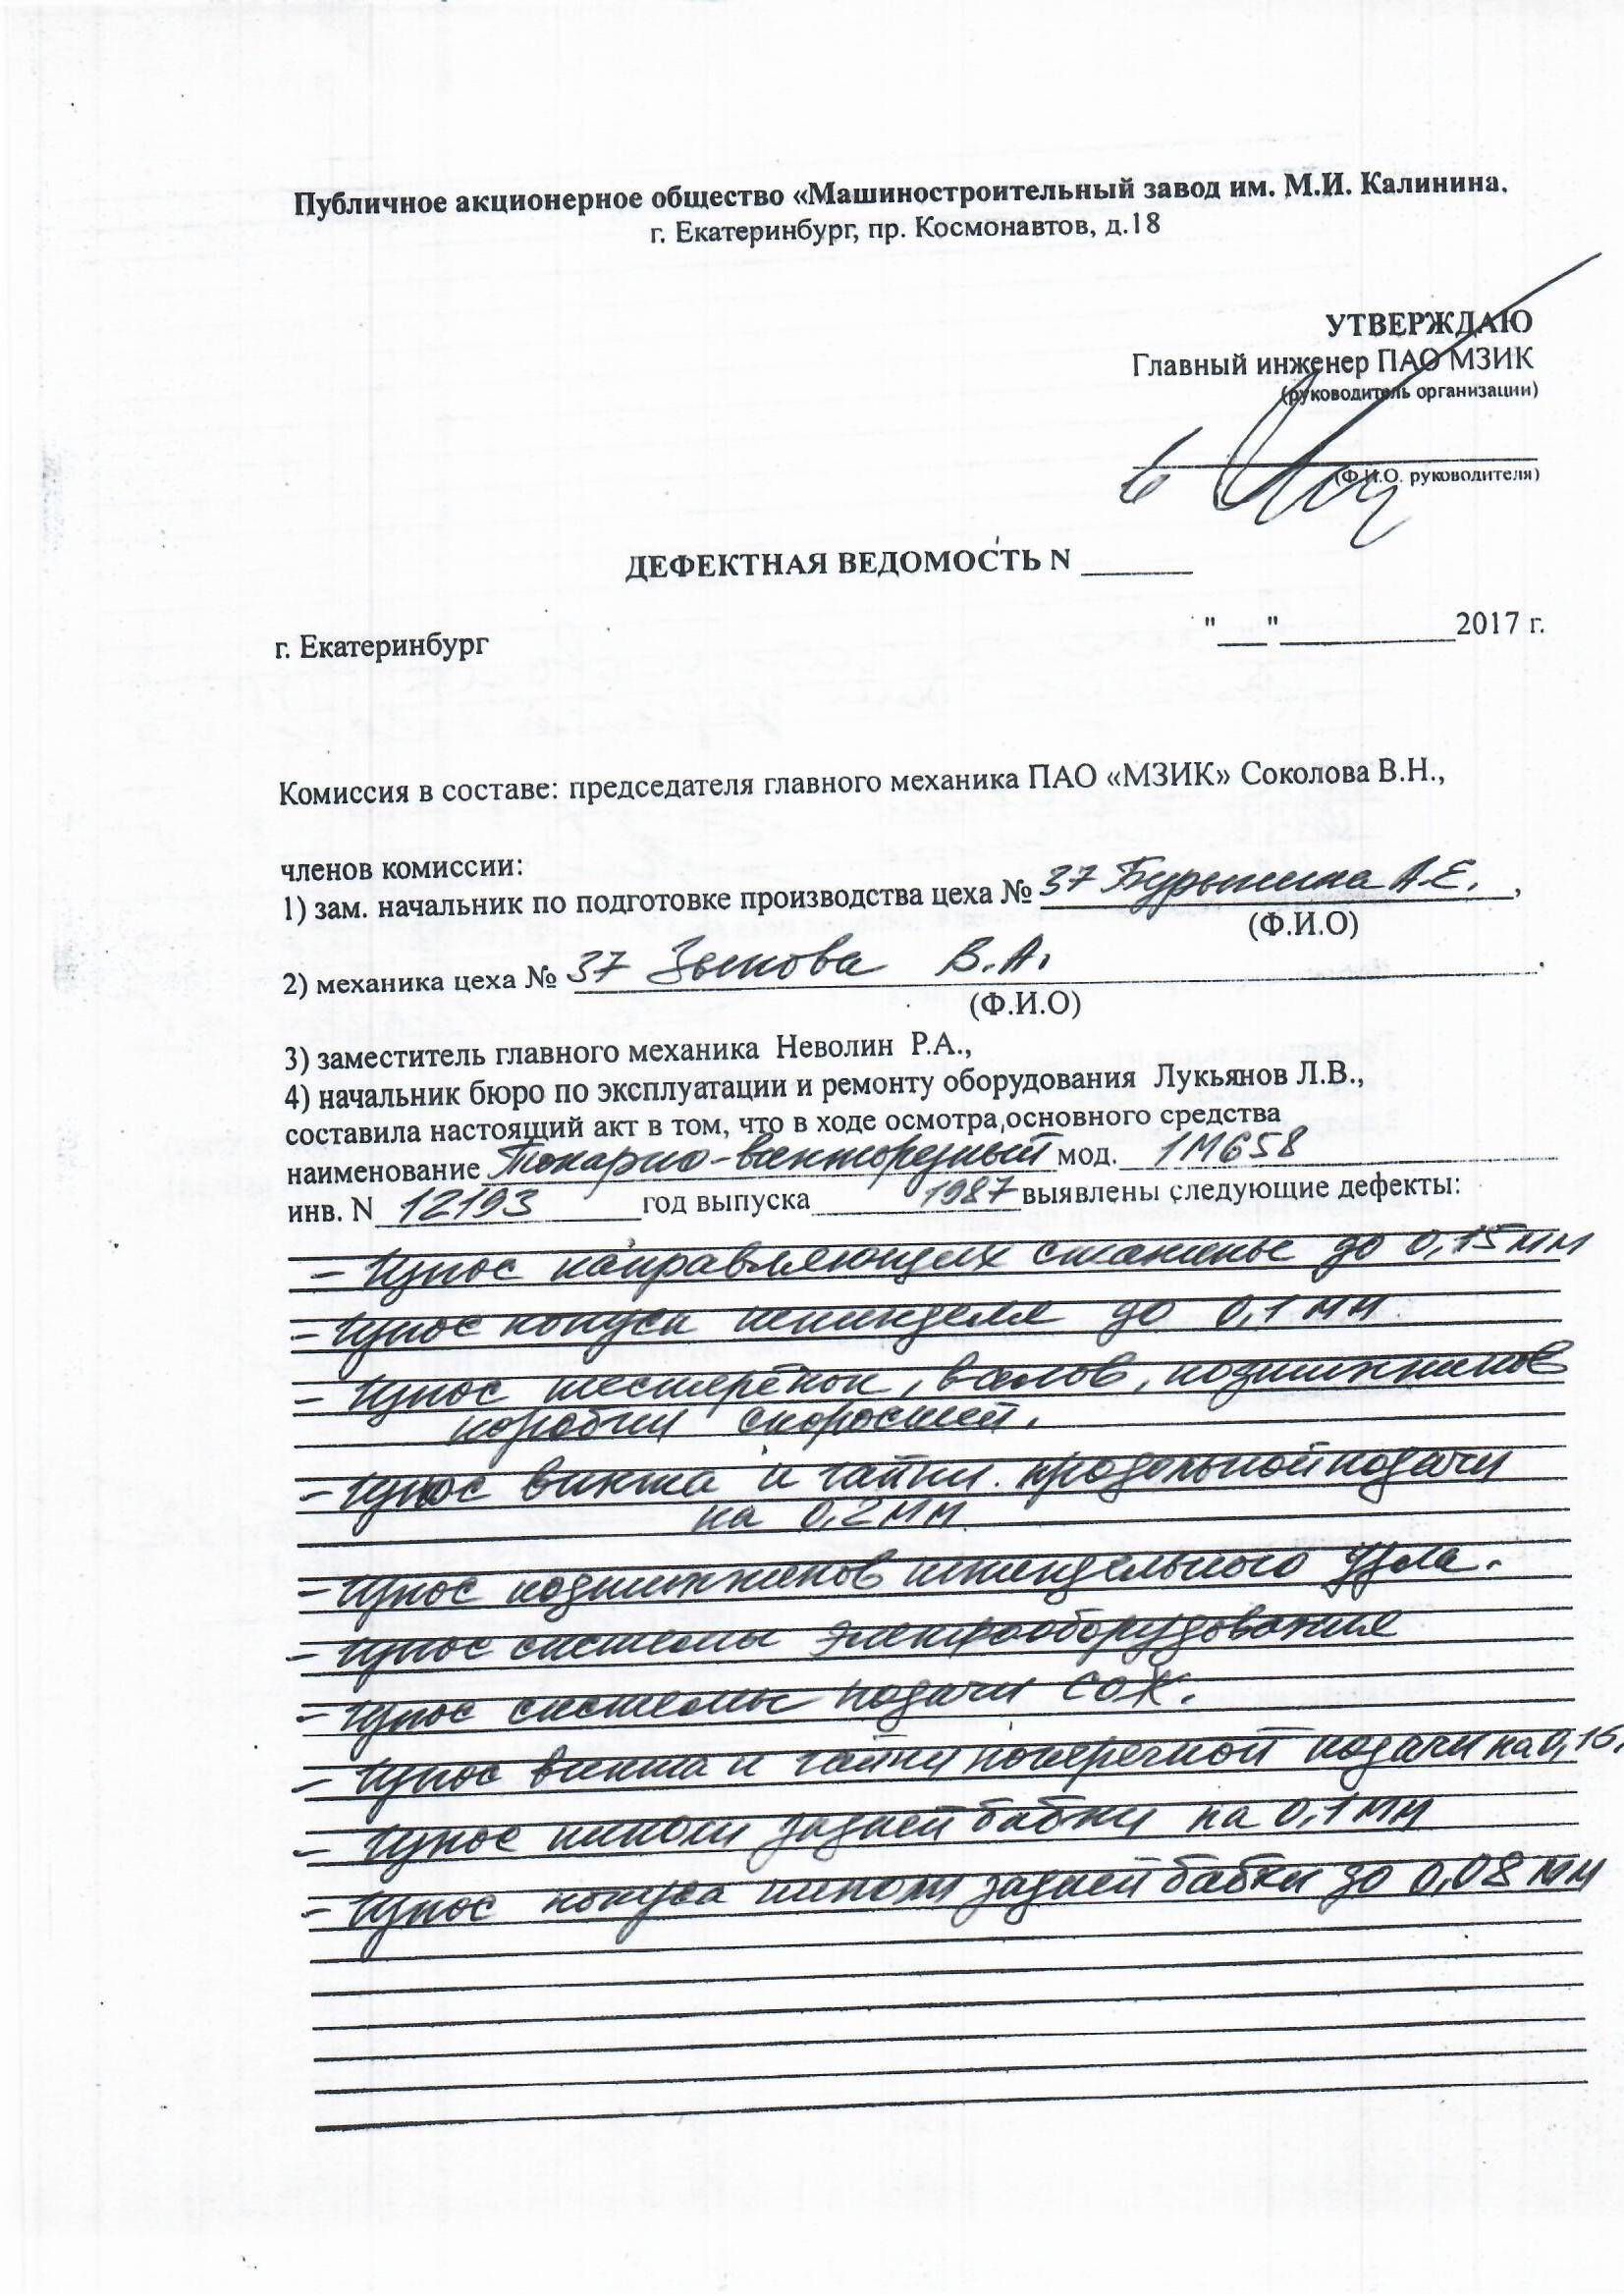 Публичное акционерное общество «Машиностроительный завод им. М.И. Калинина.
г. Екатеринбург, пр. Космонавтов, д.18
УТВЕРЖДАЮ
Главный инженер ПАО МЗИК
(руководитель организации)
(Ф.И.О. руководителя)
ДЕФЕКТНАЯ ВЕДОМОСТЬ N ______
г. Екатеринбург "___"___________2017 г.
Комиссия в составе: председателя главного механика ПАО «МЗИК» Соколова В.Н.,
членов комиссии:
1) зам. начальник по подготовке производства цеха № 37 А.Е.,
(Ф.И.О)
2) механика цеха № 37 Зыкова В.А.
(Ф.И.О)
3) заместитель главного механика Неволин Р.А.,
4) начальник бюро по эксплуатации и ремонту оборудования Лукьянов Л.В.,
составила настоящий акт в том, что в ходе осмотра основного средства
наименование Токарно-винторезный мод. 1М658
инв. N 12193 год выпуска 1987 выявлены следующие дефекты:
- Износ направляющих станины до 0,15 мм
- Износ конуса шпинделя до 0,1 мм.
- Износ шестерёнок, валов, подшипников
коробки скоростей.
- Износ винта и гайки продольной подачи
на 0,2 мм
- Износ подшипников шпиндельного узла.
- Износ системы электрооборудования
- Износ системы подачи СОЖ.
- Износ винта и гайки поперечной подачи на 0,16
- Износ пиноли задней бабки на 0,1 мм
- Износ конуса пиноли задней бабки до 0,08 мм